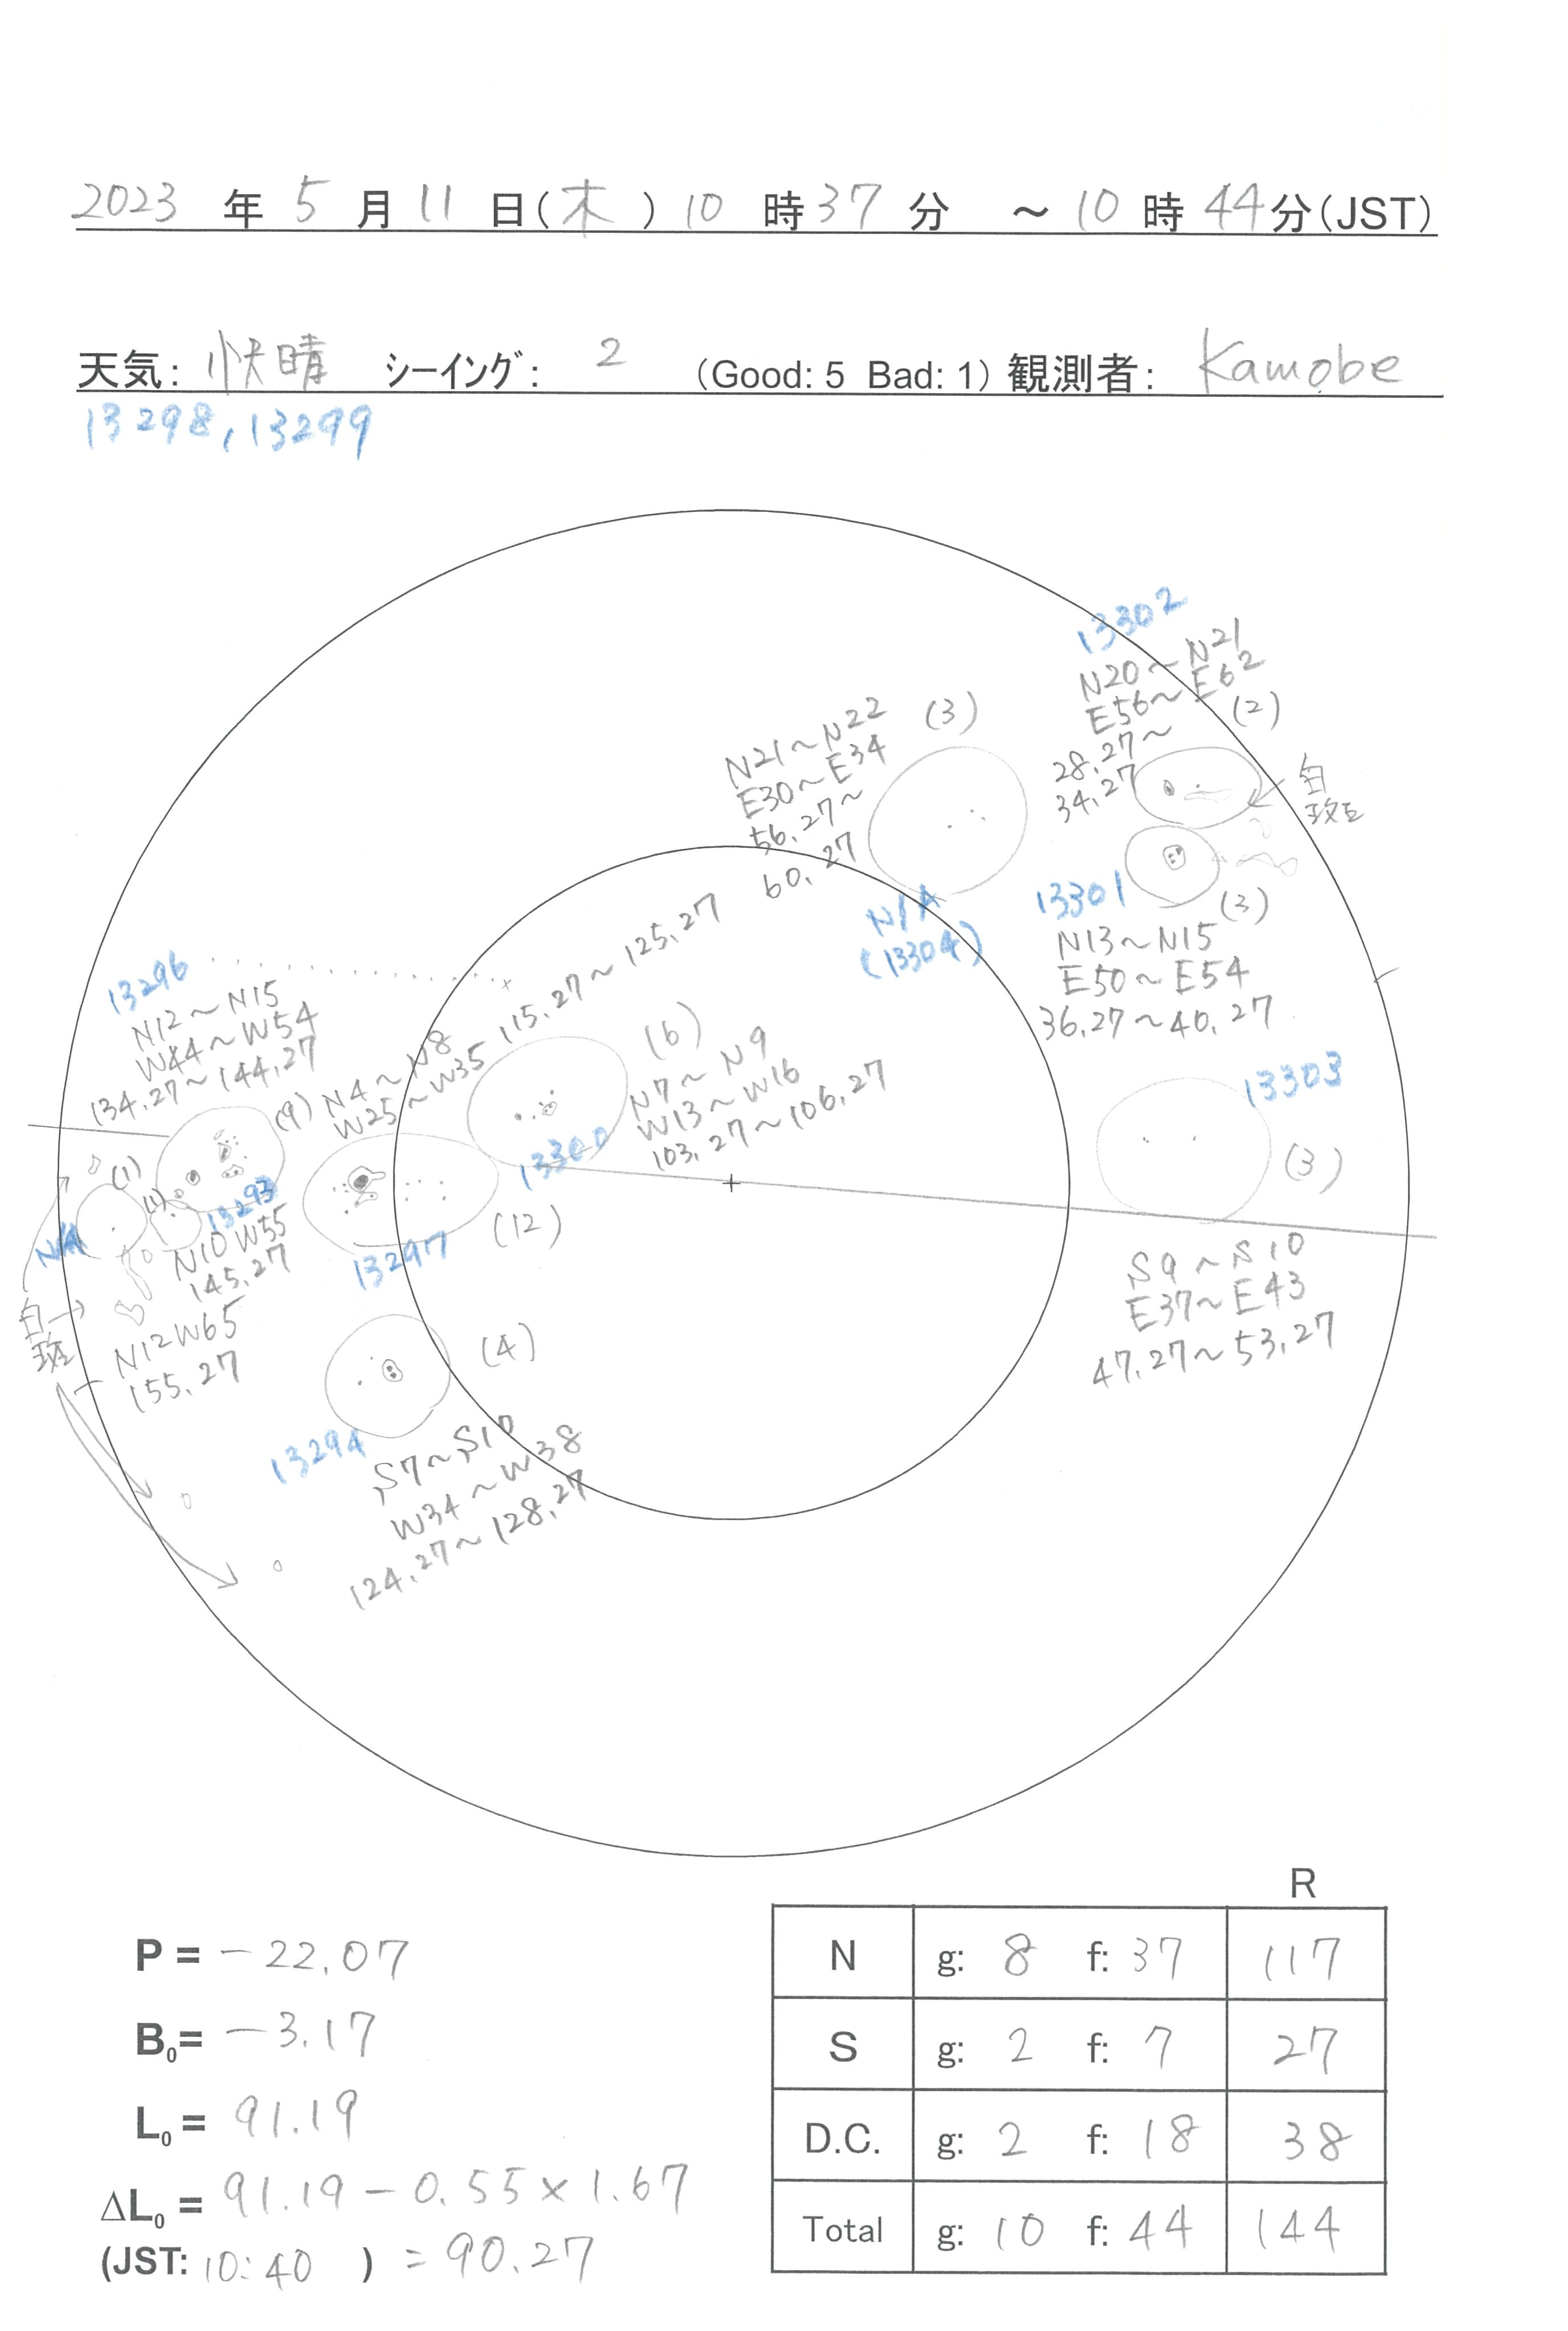 2023 年 5 月 11 日(木) 10 時 37 分 ～ 10 時 44 分(JST)
天気: 快晴 シーイング: 2 (Good: 5 Bad: 1) 観測者: Kamobe
13298, 13299
13302
N20～N21
E56～E62
(2)
28.27～
34.27
白斑
N21～N22
(3)
E30～E34
56.27～
60.27
N/A
(13304)
13301
(3)
N13～N15
E50～E54
36.27～40.27
13296
N12～N15
W44～W54
134.27～144.27
(9)
N4～N8
W25～W35 115.27～125.27
(12)
13297
(6)
N7～N9
W13～W16
103.27～106.27
13300
13303
(3)
S9～S10
E37～E43
47.27～53.27
(1)
(1)
13293
N10W55
145.27
N/A
白斑
N12W65
155.27
(4)
13294
S7～S10
W34～W38
124.27～128.27
R
P = -22.07
B₀= -3.17
L₀ = 91.19
ΔL₀ = 91.19 - 0.55 × 1.67
(JST: 10:40 ) = 90.27
N g: 8 f: 37 117
S g: 2 f: 7 27
D.C. g: 2 f: 18 38
Total g: 10 f: 44 144